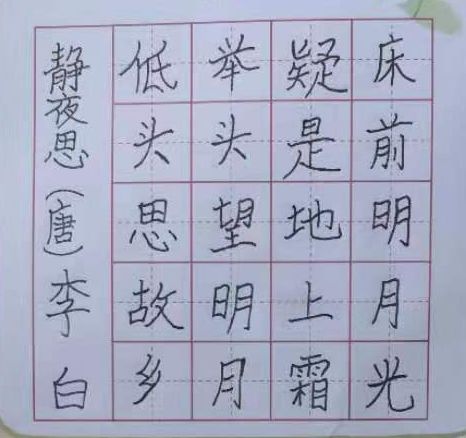 床前明月光
疑是地上霜
举头望明月
低头思故乡
静夜思(唐)李白